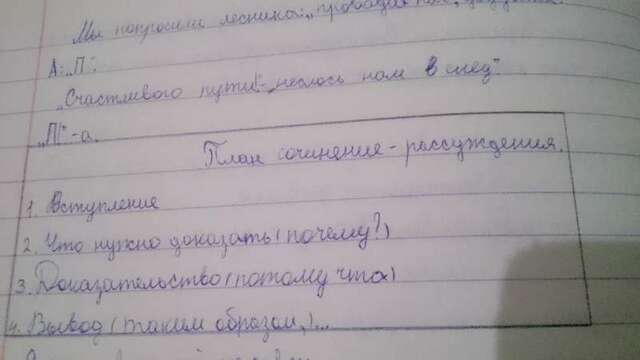 Мы попросили лесника: „проводи нам
А: „П".
„Счастливого пути!"- неслось нам в след".
„П!"-а.
План сочинение-рассуждения.
1. Вступление
2. Что нужно доказать (почему?)
3. Доказательство (потому что)
4. Вывод (таким образом,)...